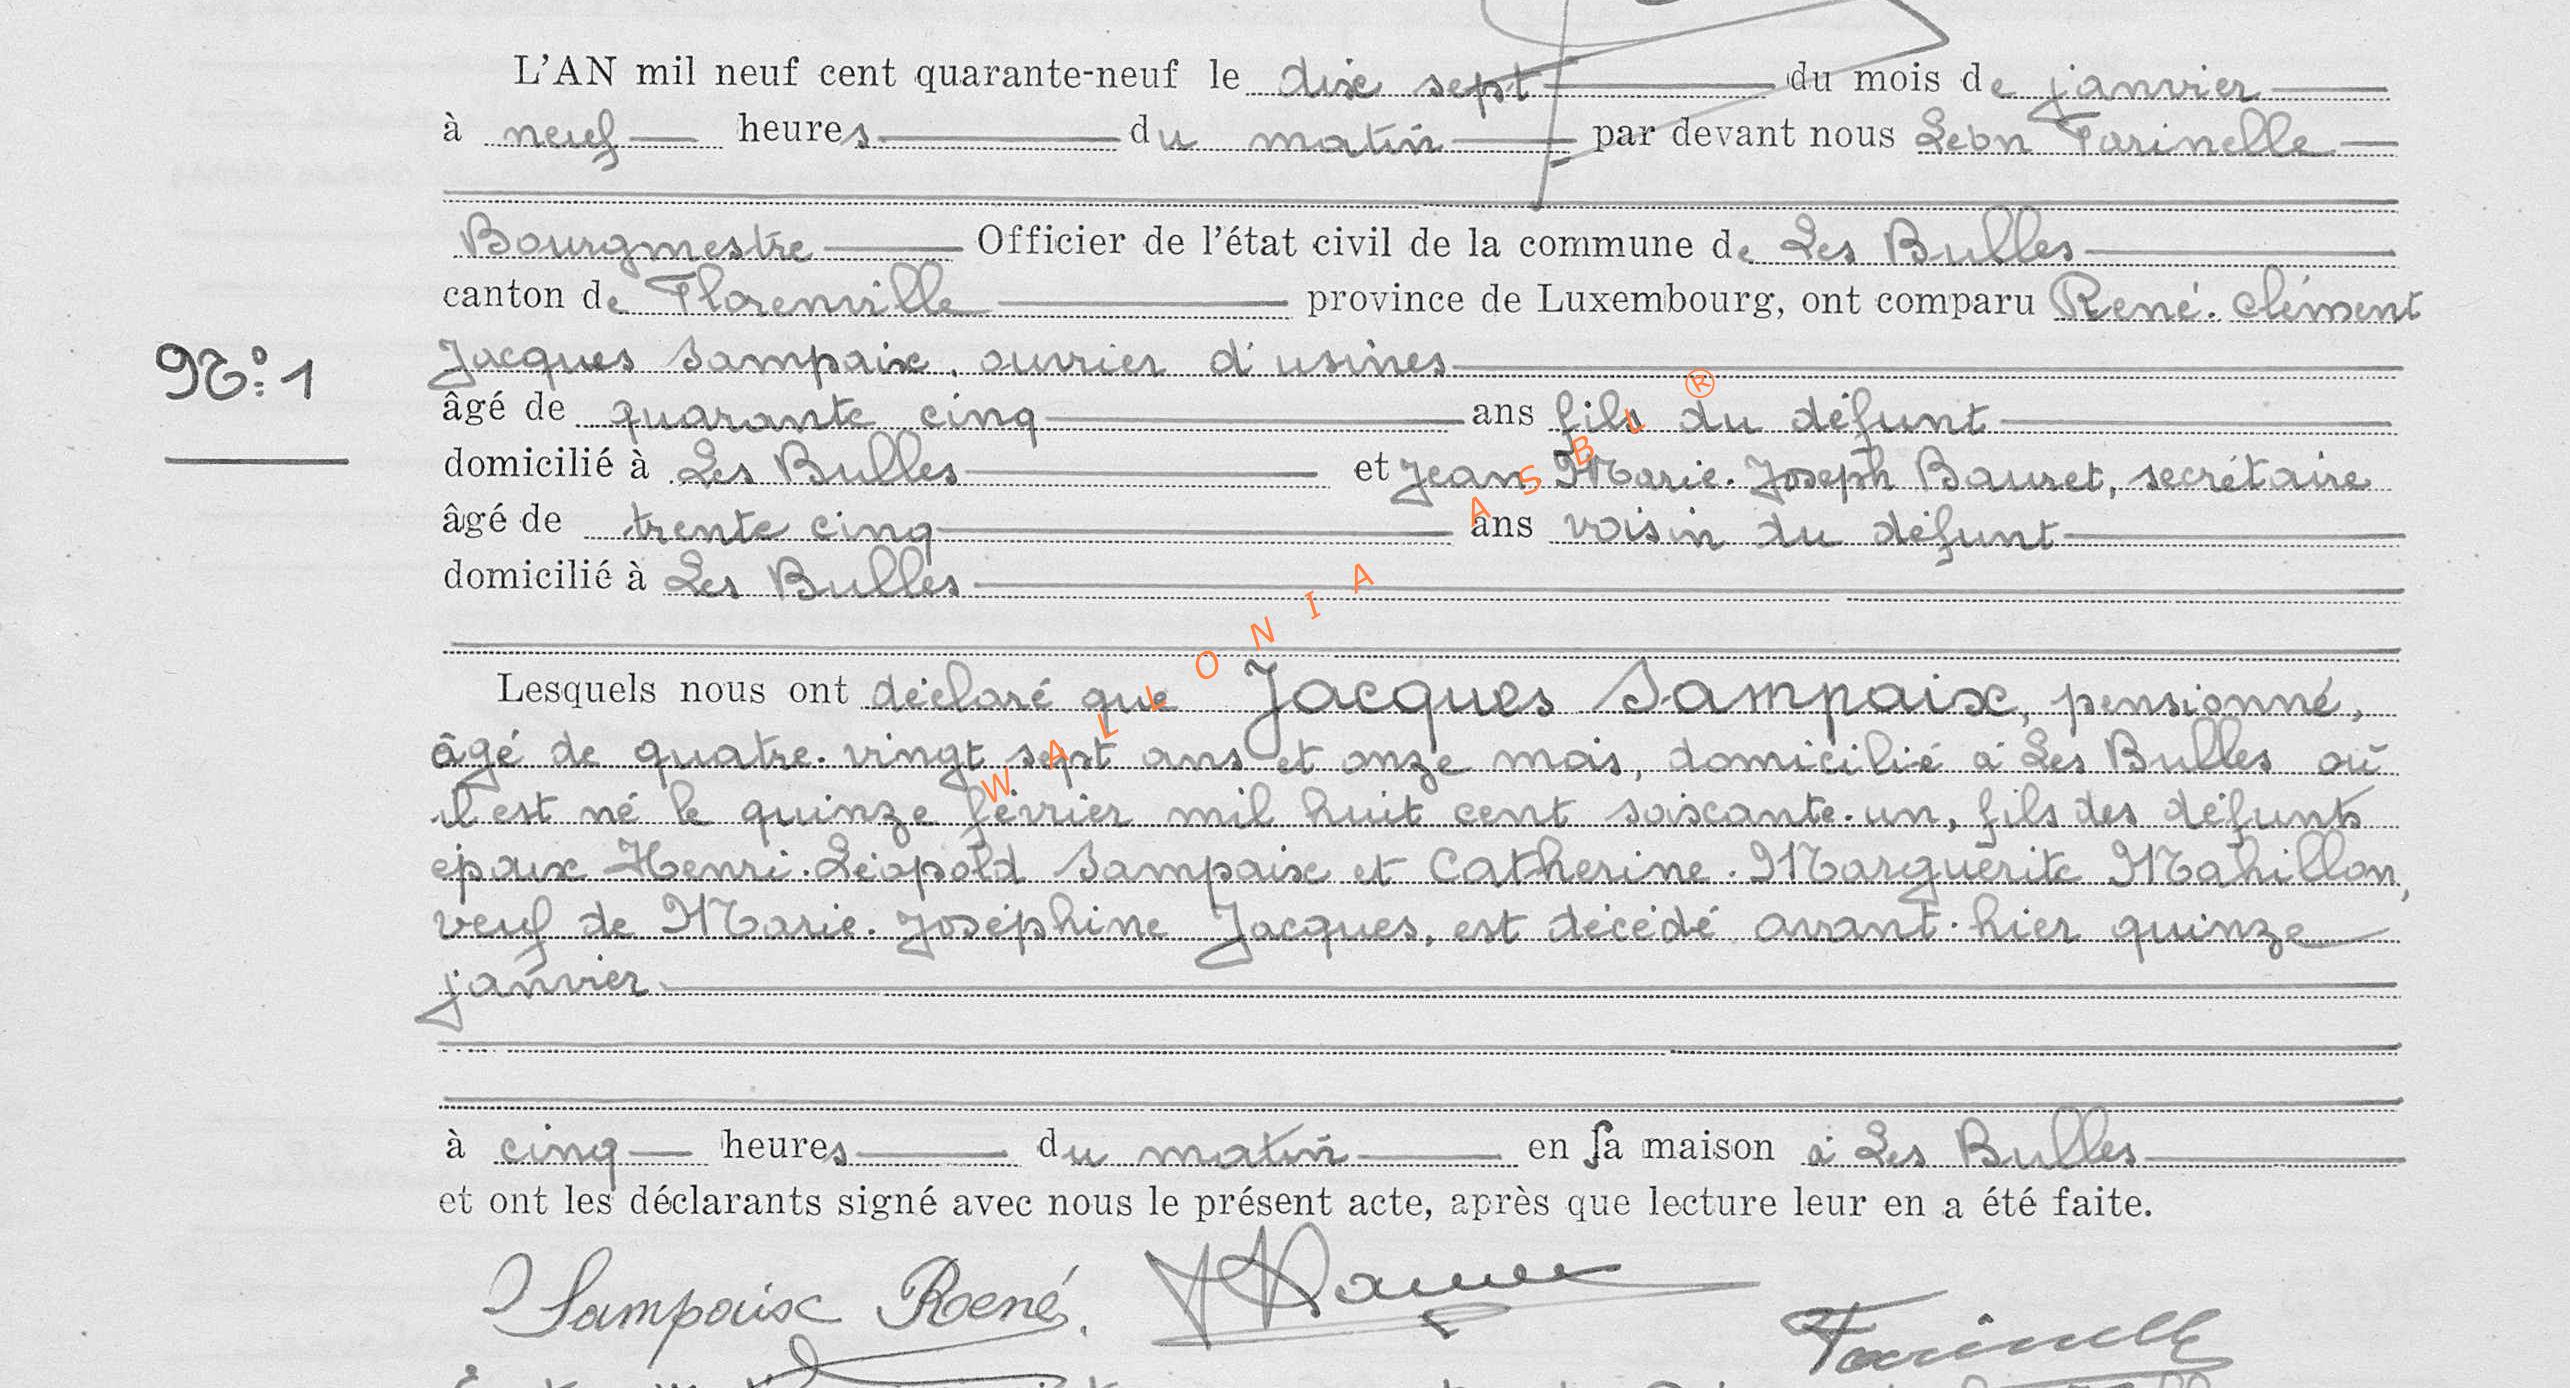 L'AN mil neuf cent quarante-neuf le dix sept du mois de janvier
à neuf heures du matin par devant nous Léon Farinelle
Bourgmestre Officier de l'état civil de la commune de Les Bulles
canton de Florenville province de Luxembourg, ont comparu René-Clément
N°: 1
Jacques Sampaix, ouvrier d'usines
âgé de quarante cinq ans fils du défunt
domicilié à Les Bulles et Jean Marie-Joseph Bauret, secrétaire
âgé de trente cinq ans voisin du défunt
domicilié à Les Bulles
Lesquels nous ont déclaré que Jacques Sampaix, pensionné,
âgé de quatre-vingt sept ans et onze mois, domicilié à Les Bulles où
il est né le quinze février mil huit cent soixante-un, fils des défunts
époux Henri-Léopold Sampaix et Catherine-Marguerite Mahillon,
veuf de Marie-Joséphine Jacques, est décédé avant-hier quinze
janvier.
à cinq heures du matin en sa maison à Les Bulles
et ont les déclarants signé avec nous le présent acte, après que lecture leur en a été faite.
Sampaix René.
Farinelle
WALLONIA ASBL ®